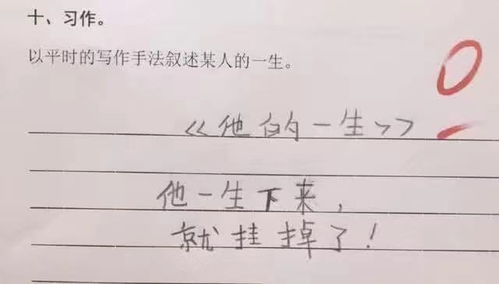 十、习作。
以平时的写作手法叙述某人的一生。
《他的一生》
他一生下来，
就挂掉了！
0